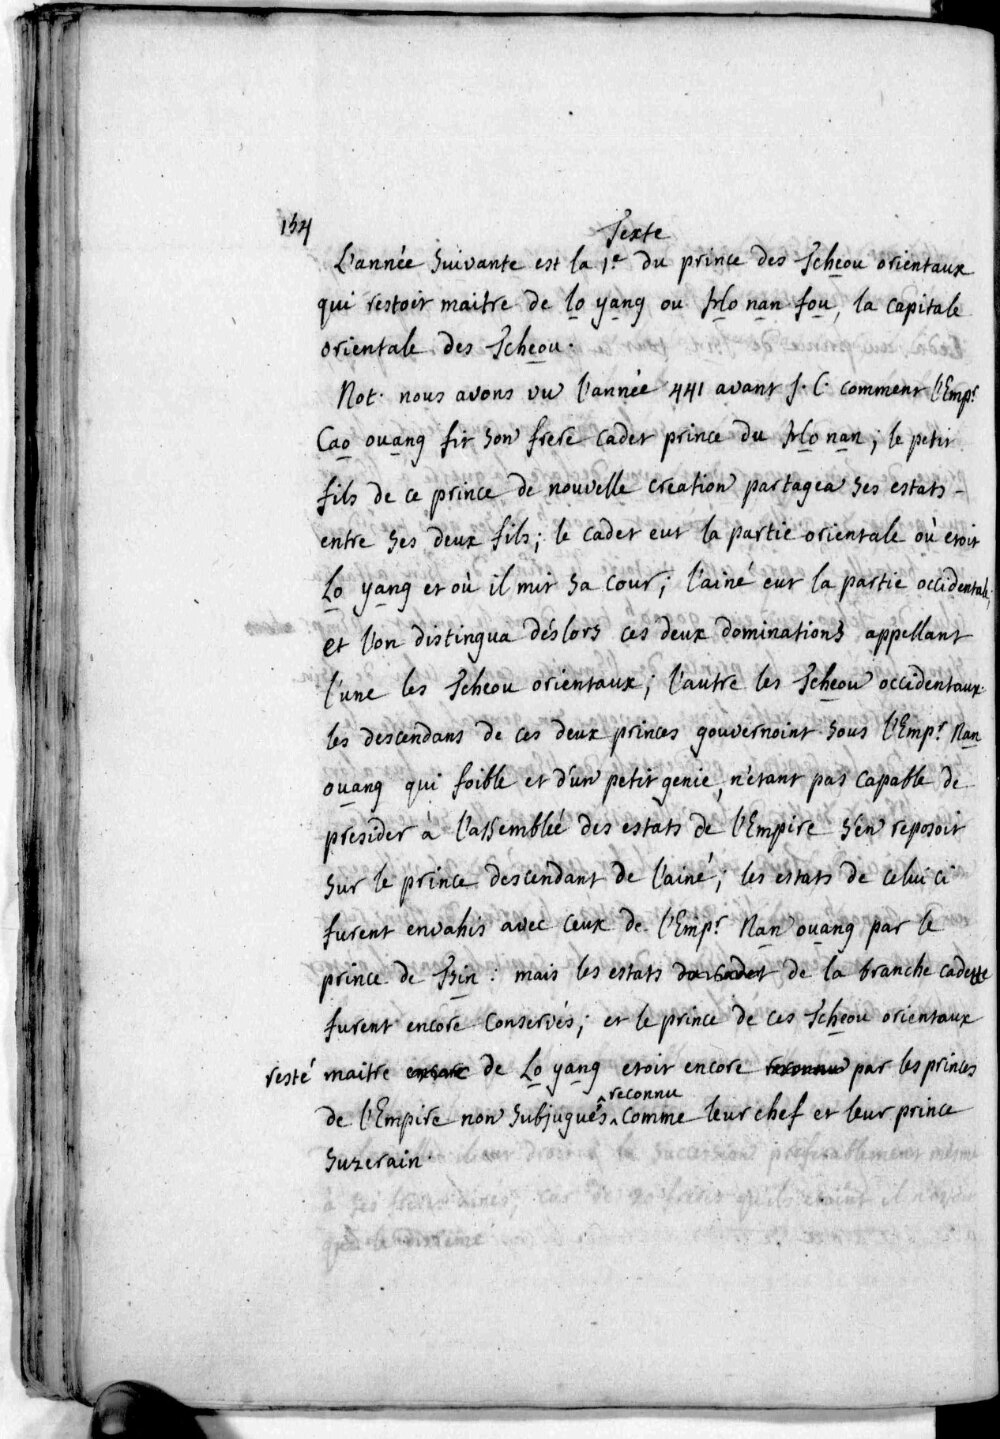 154
Texte
L'année suivante est la 1.e du prince des Tcheou orientaux
qui restoit maitre de lo yang ou Ho nan fou, la capitale
orientale des Tcheou.
Not. nous avons vu l'année 441 avant J. C. comment l'Emp.r
Cao ouang fit son frere cadet prince du Ho nan; le petit
fils de ce prince de nouvelle creation partagea ses estats
entre ses deux fils; le cadet eut la partie orientale où etoit
Lo yang et où il mit sa cour; l'ainé eut la partie occidentale;
et l'on distingua déslors ces deux dominations appellant
l'une les Tcheou orientaux; l'autre les Tcheou occidentaux.
les descendans de ces deux princes gouvernoint sous l'Emp.r Nan
ouang qui foible et d'un petit genie, n'etant pas capable de
presider à l'assembleé des estats de l'Empire s'en reposoit
sur le prince descendant de l'ainé; les estats de celui ci
furent envahis avec ceux de l'Emp.r Nan ouang par le
prince de Tsin: mais les estats du cadet de la branche cadette
furent encore conservés; et le prince de ces Tcheou orientaux
resté maitre encore de Lo yang etoit encore reconnu par les princes
de l'Empire non subjugués reconnu comme leur chef et leur prince
suzerain.